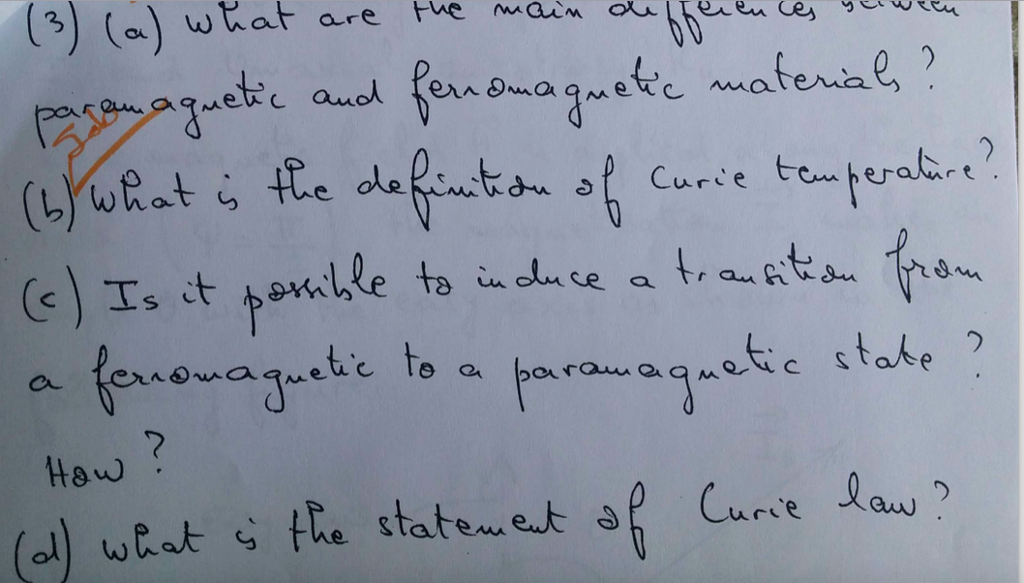 (3) (a) What are the main differences between
paramagnetic and ferromagnetic materials?
(b) What is the definition of Curie temperature?
(c) Is it possible to induce a transition from
a ferromagnetic to a paramagnetic state?
How?
(d) What is the statement of Curie law?